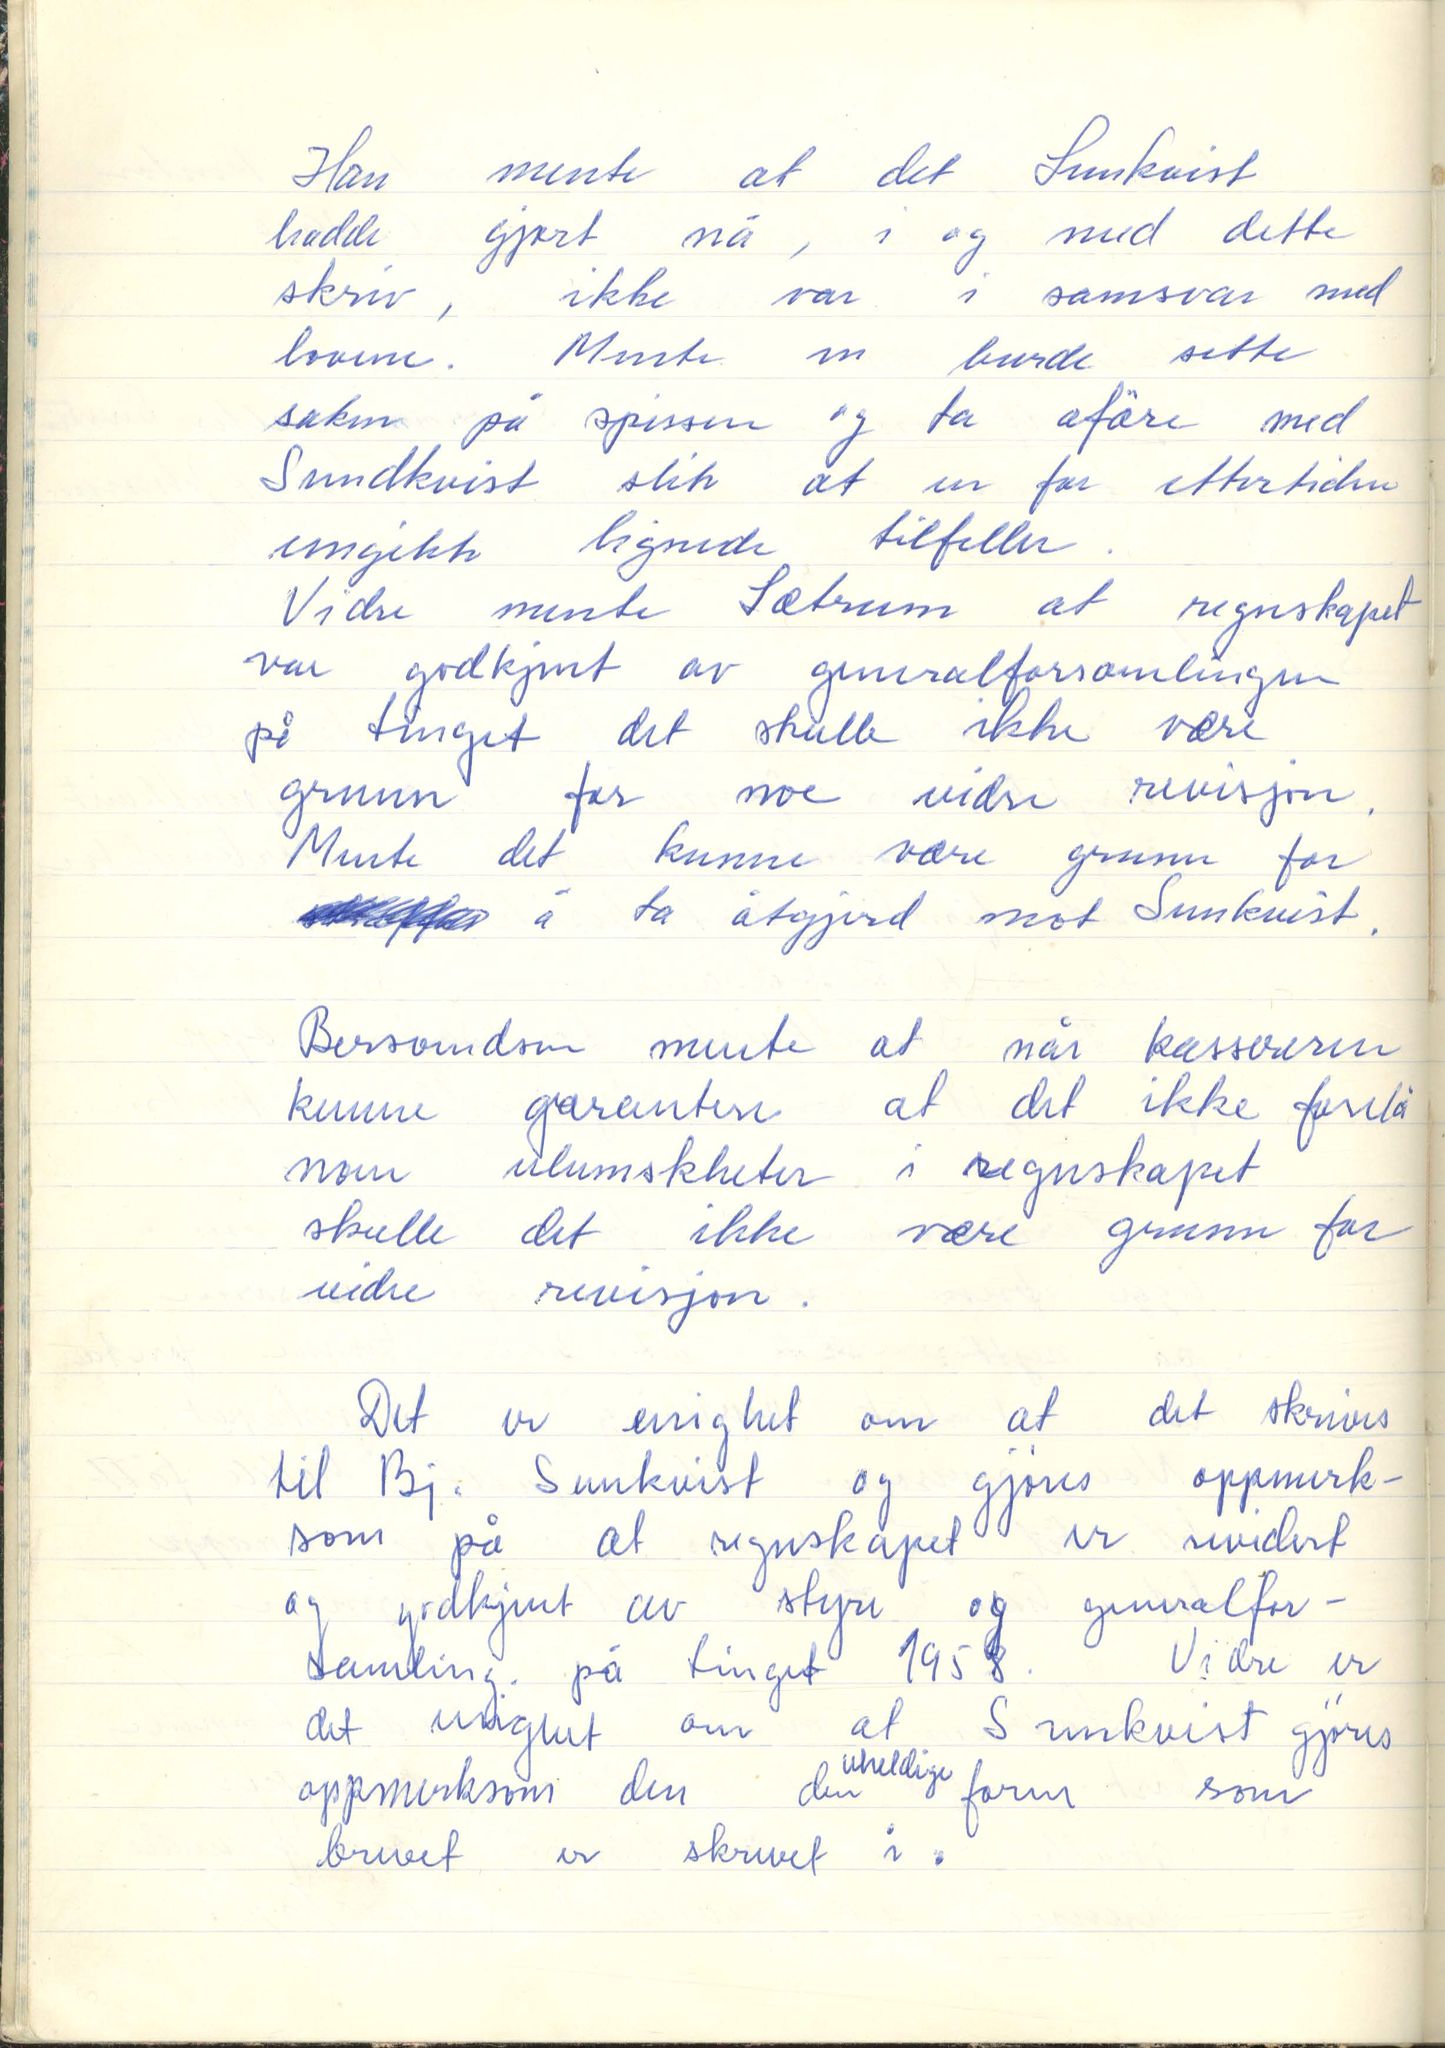 Han mente at det Sunkvist
hadde gjort nå, i og med dette
skriv, ikke var i samsvar med
lovene. Mente en burde sette
saken på spissen og ta afäre med
Sundkvist slik at en for ettertiden
unngikk lignede tilfeller.
Vidre mente Sætrum at regnskapet
var godkjent av generalforsamlingen
på tinget det skulle ikke være
grunn for noe vidre revisjon.
Mente det kunne være grunn for
å ta åtgjerd mot Sunkvist.
mente at når kassereren
kunne garantere at det ikke forelå
noen ulumskheter i regnskapet
skulle det ikke være grunn for
vidre revisjon.
Det er enighet om at det skrives
til Bj. Sunkvist og gjöres oppmerk-
som på at regnskapet er revidert
og godkjent av styre og generalfor-
samling. på tinget 1958. Vidre er
det enighet om at Sunkvist gjöres
oppmerksom den den uheldige form som
brevet er skrevet i.